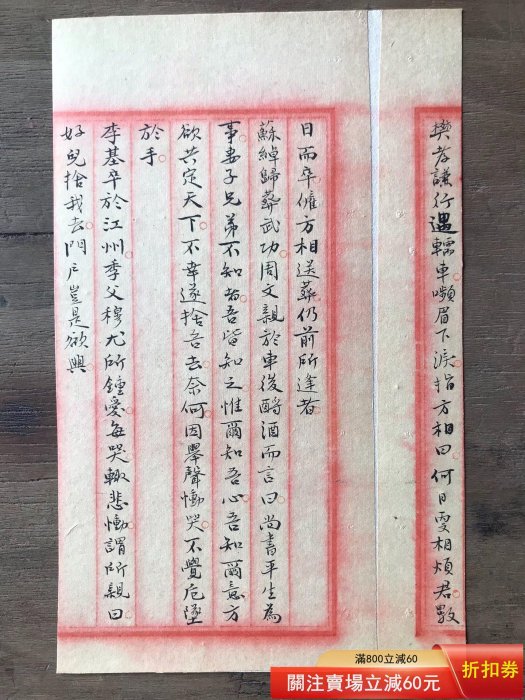 樊孝謙行遇轜車嚬眉下淚指方相曰何日更相煩君數
日而卒僱方相送葬仍前所逢者
蘇綽歸葬武功周文親於車後酹酒而言曰尚書平生為
事妻子兄弟不知者吾皆知之惟爾知吾心吾知爾意方
欲共定天下不幸遂捨吾去奈何因舉聲慟哭不覺卮墜
於手
李基卒於江州季父穆尤所鍾愛每哭輒悲慟謂所親曰
好兒捨我去門戶豈是欲興
滿800立減60
關注賣場立減60元
折扣券